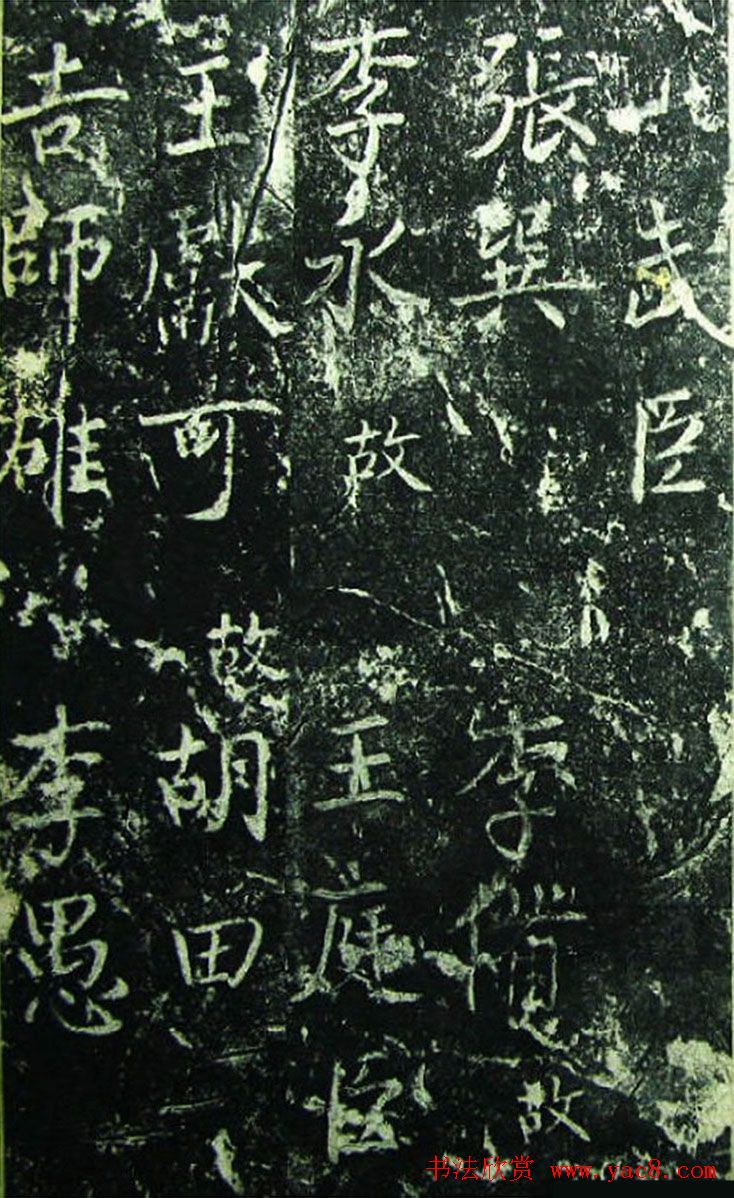 武臣
張巽 李備故
李永故 王庭臣
王獻可故 胡田
吉師雄 李愚
书法欣赏 www.yac8.com